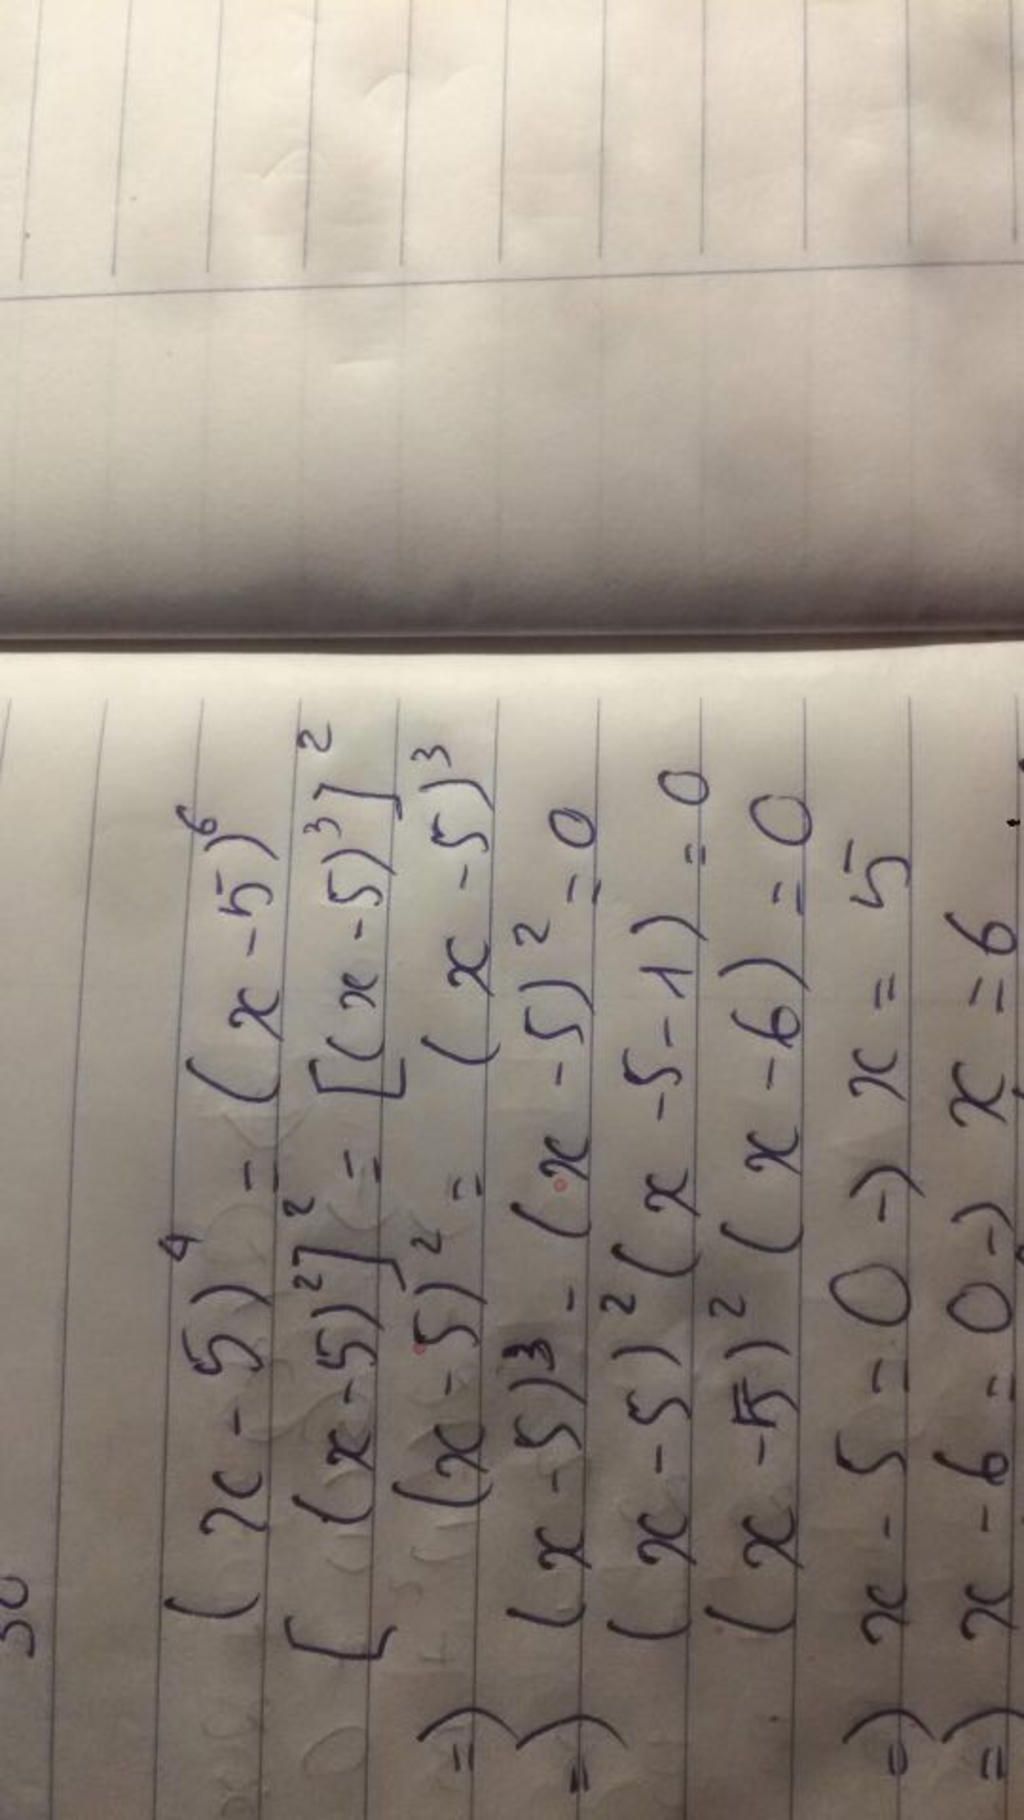 30
(x-5)⁴ = (x-5)⁶
[(x-5)²]² = [(x-5)³]²
=) (x-5)² = (x-5)³
=) (x-5)³ - (x-5)² = 0
(x-5)² (x-5-1) = 0
(x-5)² (x-6) = 0
=) x-5=0 -) x = 5
=) x-6=0 -) x = 6